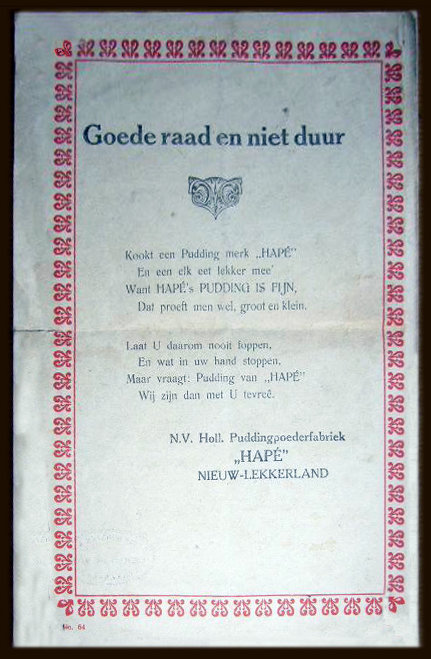 Goede raad en niet duur
Kookt een Pudding merk „HAPÉ”
En een elk eet lekker mee'
Want HAPÉ's PUDDING IS FIJN,
Dat proeft men wel, groot en klein.
Laat U daarom nooit foppen,
En wat in uw hand stoppen,
Maar vraagt: Pudding van „HAPÉ”
Wij zijn dan met U tevreê.
N.V. Holl. Puddingpoederfabriek
„HAPÉ”
NIEUW-LEKKERLAND
No. 64